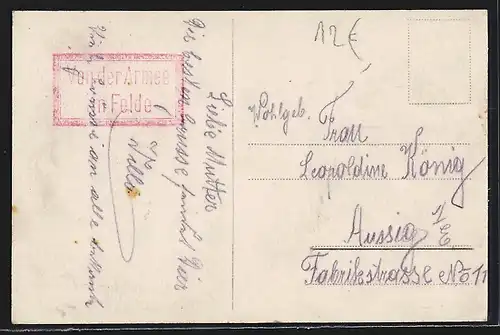 12€
Von der Armee
im Felde
Liebe Mutter
Die besten Grüsse sendet Dir
Willi
Viele Grüsse an alle
Wohlgeb.
Frau
Leopoldine König
Aussig a/E
Fabrikstrasse No 11